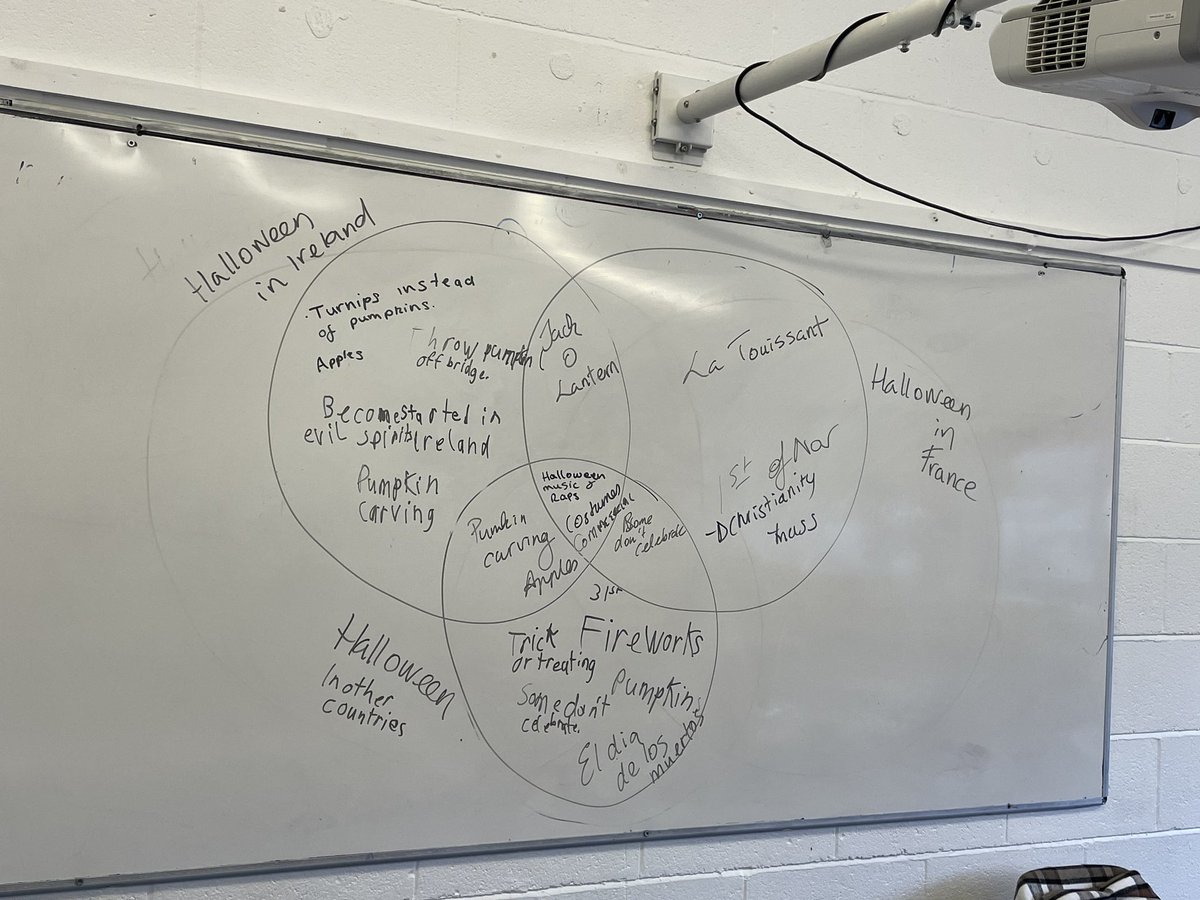 Halloween
in Ireland
·Turnips instead
of pumpkins.
Apples
Throw pumpkin
off bridge.
Become started in
evil spirits Ireland
Pumpkin
carving
Jack
O
Lantern
La Touissant
1st of Nov
Christianity
mass
Halloween
in
France
Halloween
music &
Raps
Costumes
Commercial
Pumkin
carving
Apples
Some
don't
celebrate
31st
Trick
or treating
Fireworks
Some don't
celebrate.
Pumpkins
El dia
de los
muertos
Halloween
In other
countries